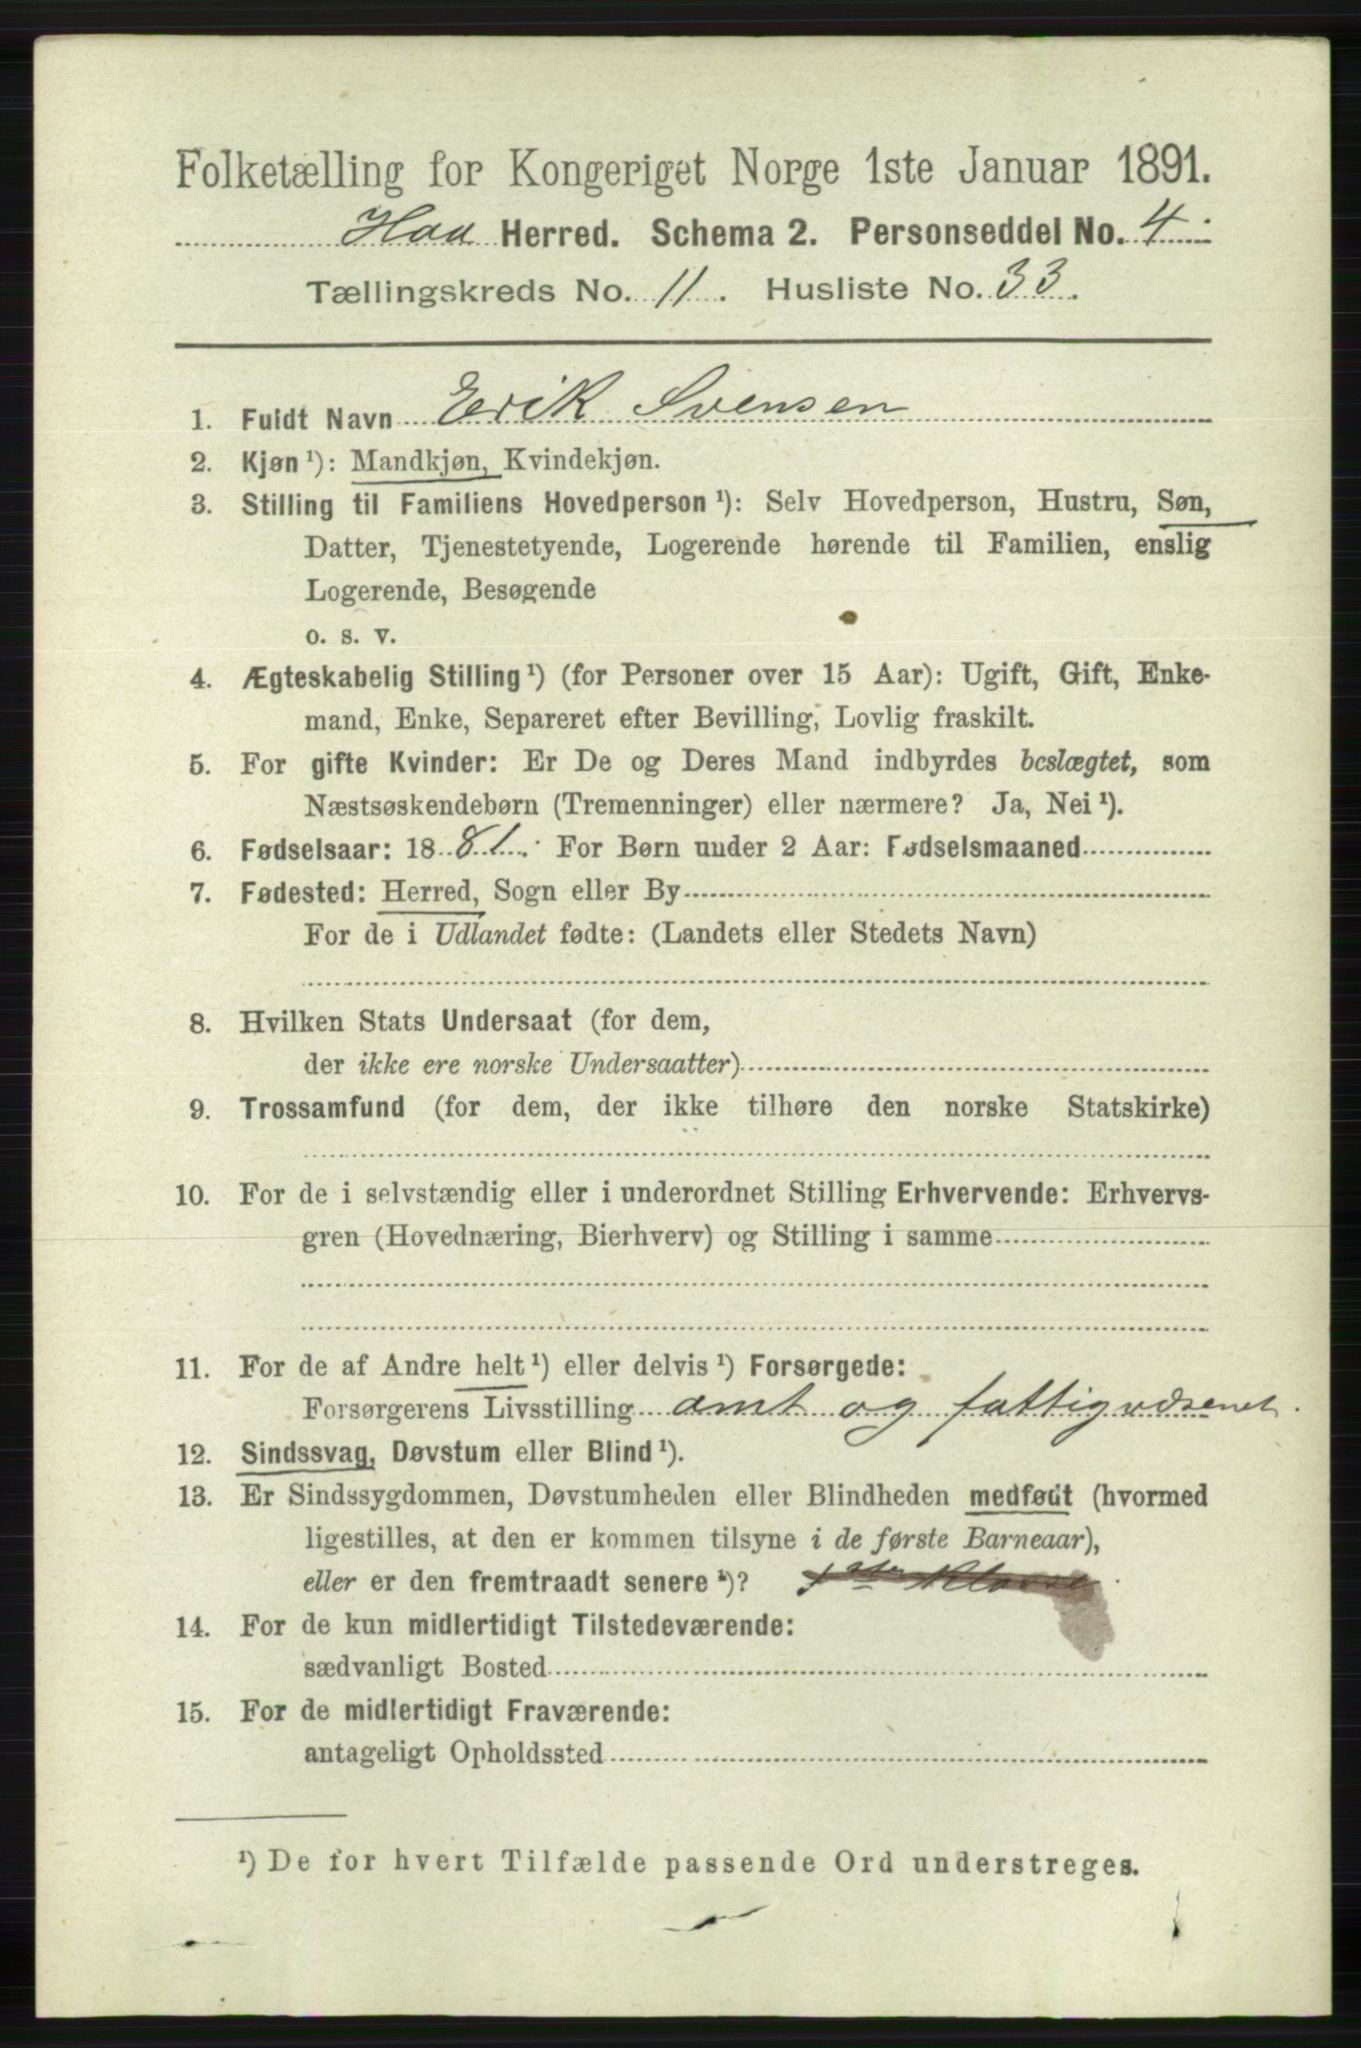 Folketælling for Kongeriget Norge 1ste Januar 1891.
Haa Herred. Schema 2. Personseddel No. 4.
Tællingskreds No. 11. Husliste No. 33.
1. Fuldt Navn Erik Svensen
2. Kjøn ¹): Mandkjøn, Kvindekjøn.
3. Stilling til Familiens Hovedperson ¹): Selv Hovedperson, Hustru, Søn,
Datter, Tjenestetyende, Logerende hørende til Familien, enslig
Logerende, Besøgende
o. s. v.
4. Ægteskabelig Stilling ¹) (for Personer over 15 Aar): Ugift, Gift, Enke-
mand, Enke, Separeret efter Bevilling, Lovlig fraskilt.
5. For gifte Kvinder: Er De og Deres Mand indbyrdes beslægtet, som
Næstsøskendebørn (Tremenninger) eller nærmere? Ja, Nei ¹).
6. Fødselsaar: 1881. For Børn under 2 Aar: Fødselsmaaned
7. Fødested: Herred, Sogn eller By
For de i Udlandet fødte: (Landets eller Stedets Navn)
8. Hvilken Stats Undersaat (for dem,
der ikke ere norske Undersaatter)
9. Trossamfund (for dem, der ikke tilhøre den norske Statskirke)
10. For de i selvstændig eller i underordnet Stilling Erhvervende: Erhvervs-
gren (Hovednæring, Bierhverv) og Stilling i samme
11. For de af Andre helt ¹) eller delvis ¹) Forsørgede:
Forsørgerens Livsstilling amt og fattigvæsenet.
12. Sindssvag, Døvstum eller Blind ¹).
13. Er Sindssygdommen, Døvstumheden eller Blindheden medfødt (hvormed
ligestilles, at den er kommen tilsyne i de første Barneaar),
eller er den fremtraadt senere ¹)? 1ste Klasse.
14. For de kun midlertidigt Tilstedeværende:
sædvanligt Bosted
15. For de midlertidigt Fraværende:
antageligt Opholdssted
¹) De for hvert Tilfælde passende Ord understreges.